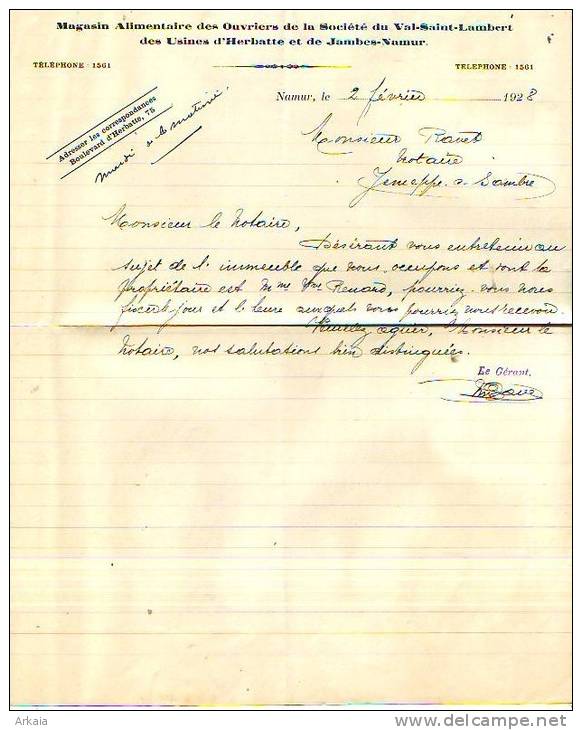 Magasin Alimentaire des Ouvriers de la Société du Val-Saint-Lambert
des Usines d'Herbatte et de Jambes-Namur.
TÉLÉPHONE : 1561
TÉLÉPHONE : 1561
Adresser les correspondances
Boulevard d'Herbatte, 75
mardi a la matinée
Namur, le 2 février 1928
Monsieur
Notaire
Jemeppe s. Sambre
Monsieur le Notaire,
Désirant vous entretenir au
sujet de l'immeuble que nous occupons et dont la
propriétaire est Mme Vve Renard, pourriez-vous nous
fixer le jour et le heure auxquels vous pourriez nous recevoir.
Veuillez agréer, Monsieur le
Notaire, nos salutations bien distinguées.
Le Gérant.
Arkaia
www.delcampe.net